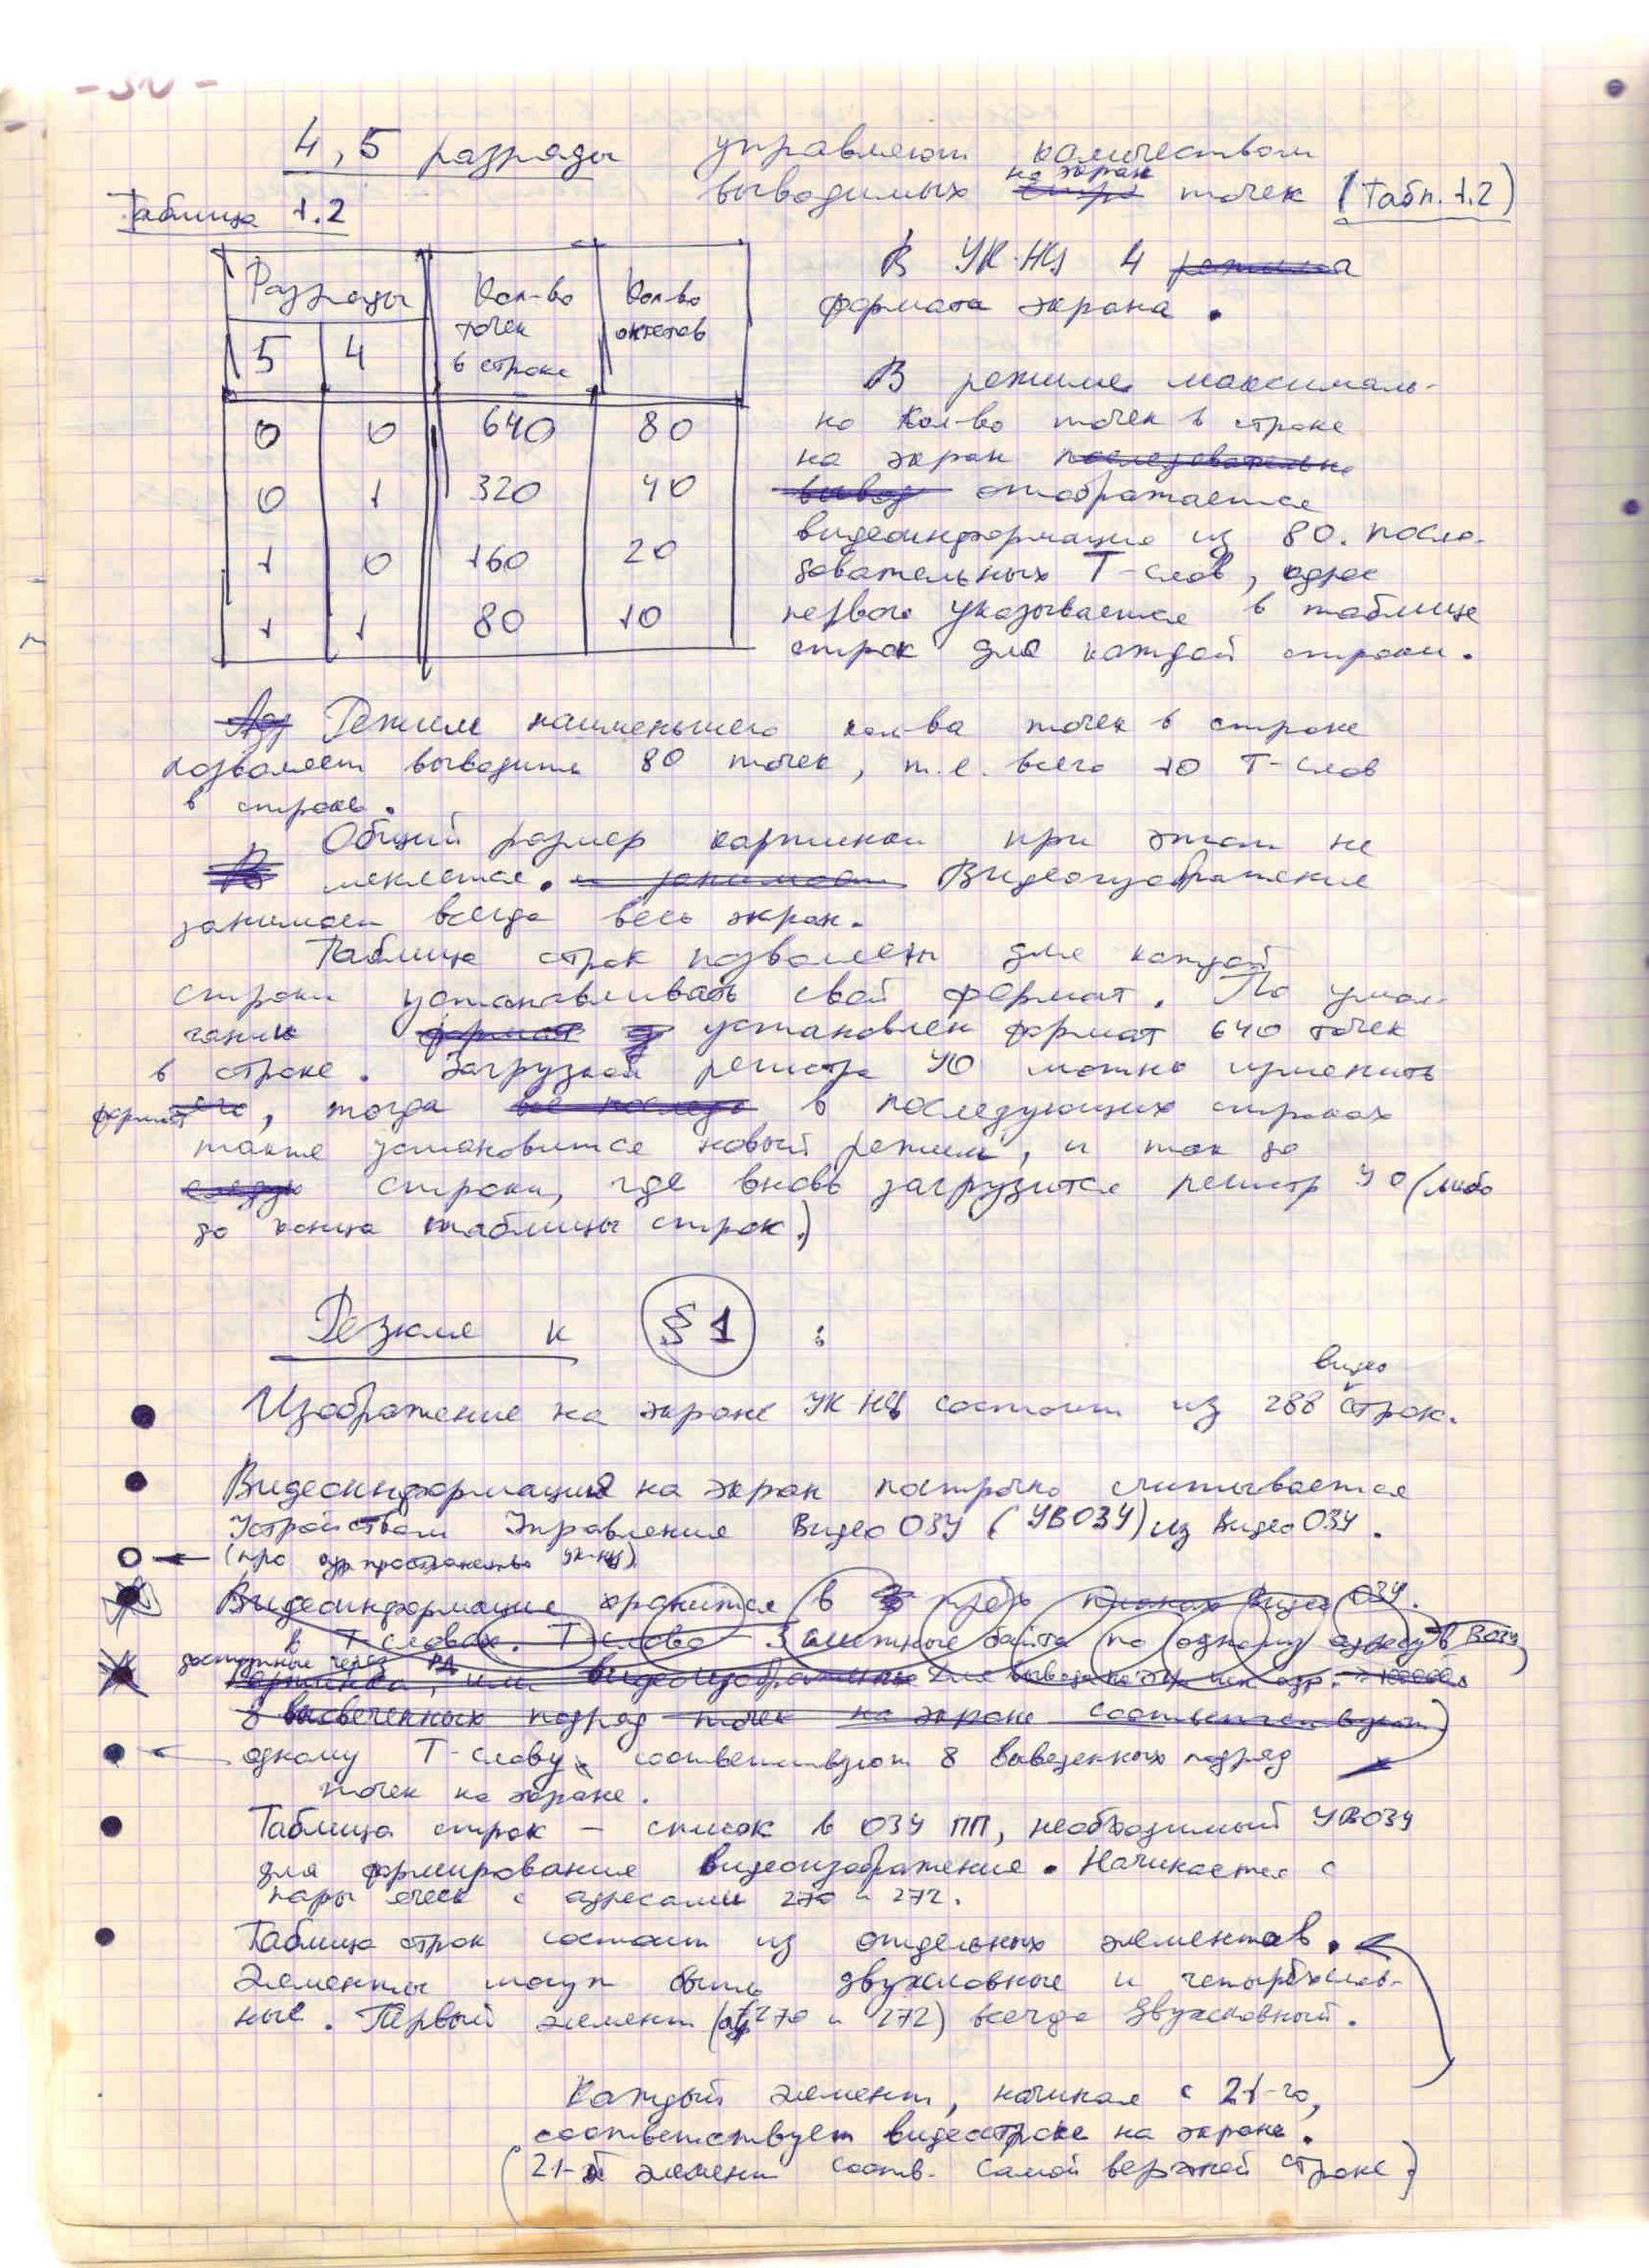 4,5 разряды управляют количеством
выводимых на экран точек (Табл. 1.2)
Таблица 1.2
Разряды Кол-во точек в строке Кол-во октетов
5 4
0 0 640 80
0 1 320 40
1 0 160 20
1 1 80 10
В УК-НЦ 4
формата экрана.
В режиме максималь-
но кол-во точек в строке
на экран последовательно
вывод отображается
видеоинформация из 80. после-
довательных Т-слов, адрес
первого указывается в таблице
строк для каждой строки.
Адр Режим наименьшего кол-ва точек в строке
позволяет выводить 80 точек, т.е. всего 10 Т-слов
в строке.
Общий размер картинки при этом не
меняется. и занимает Видеоизображение
занимает всегда весь экран.
Таблица строк позволяет для каждой
строки устанавливать свой формат. По умол-
чанию формат установлен формат 640 точек
в строке. Загрузкой регистра УО можно изменить
формат его, тогда все последо в последующих строках
также установится новый режим, и так до
следую строки, где вновь загрузится регистр УО (либо
до конца таблицы строк.)
Резюме к § 1 :
Изображение на экране УК НЦ состоит из 288 видео строк.
Видеоинформация на экран построчно считывается
Устройством Управления Видео ОЗУ (УВОЗУ) из Видео ОЗУ.
(про адр пространство УК-НЦ)
Видеоинформация хранится в трёх планах видео ОЗУ.
в Т словах. Т слово - 3 смежные байта по одному адресу в ВОЗУ
доступные через РА
картинка, или видеоизображение
8 высвеченных подряд точек на экране соответствуют
одному Т-слову соответствуют 8 выведенных подряд
точек на экране.
Таблица строк - список в ОЗУ ПП, необходимый УВОЗУ
для формирования видеоизображение. Начинается с
пары ячеек с адресами 270 и 272.
Таблица строк состоит из отдельных элементов.
Элементы могут быть двухсловные и четырёхслов-
ные. Первый элемент (адр 270 и 272) всегда двухсловный.
Каждый элемент, начиная с 21-го,
соответствует видеостроке на экране.
(21-й элемент соотв. самой верхней строке)